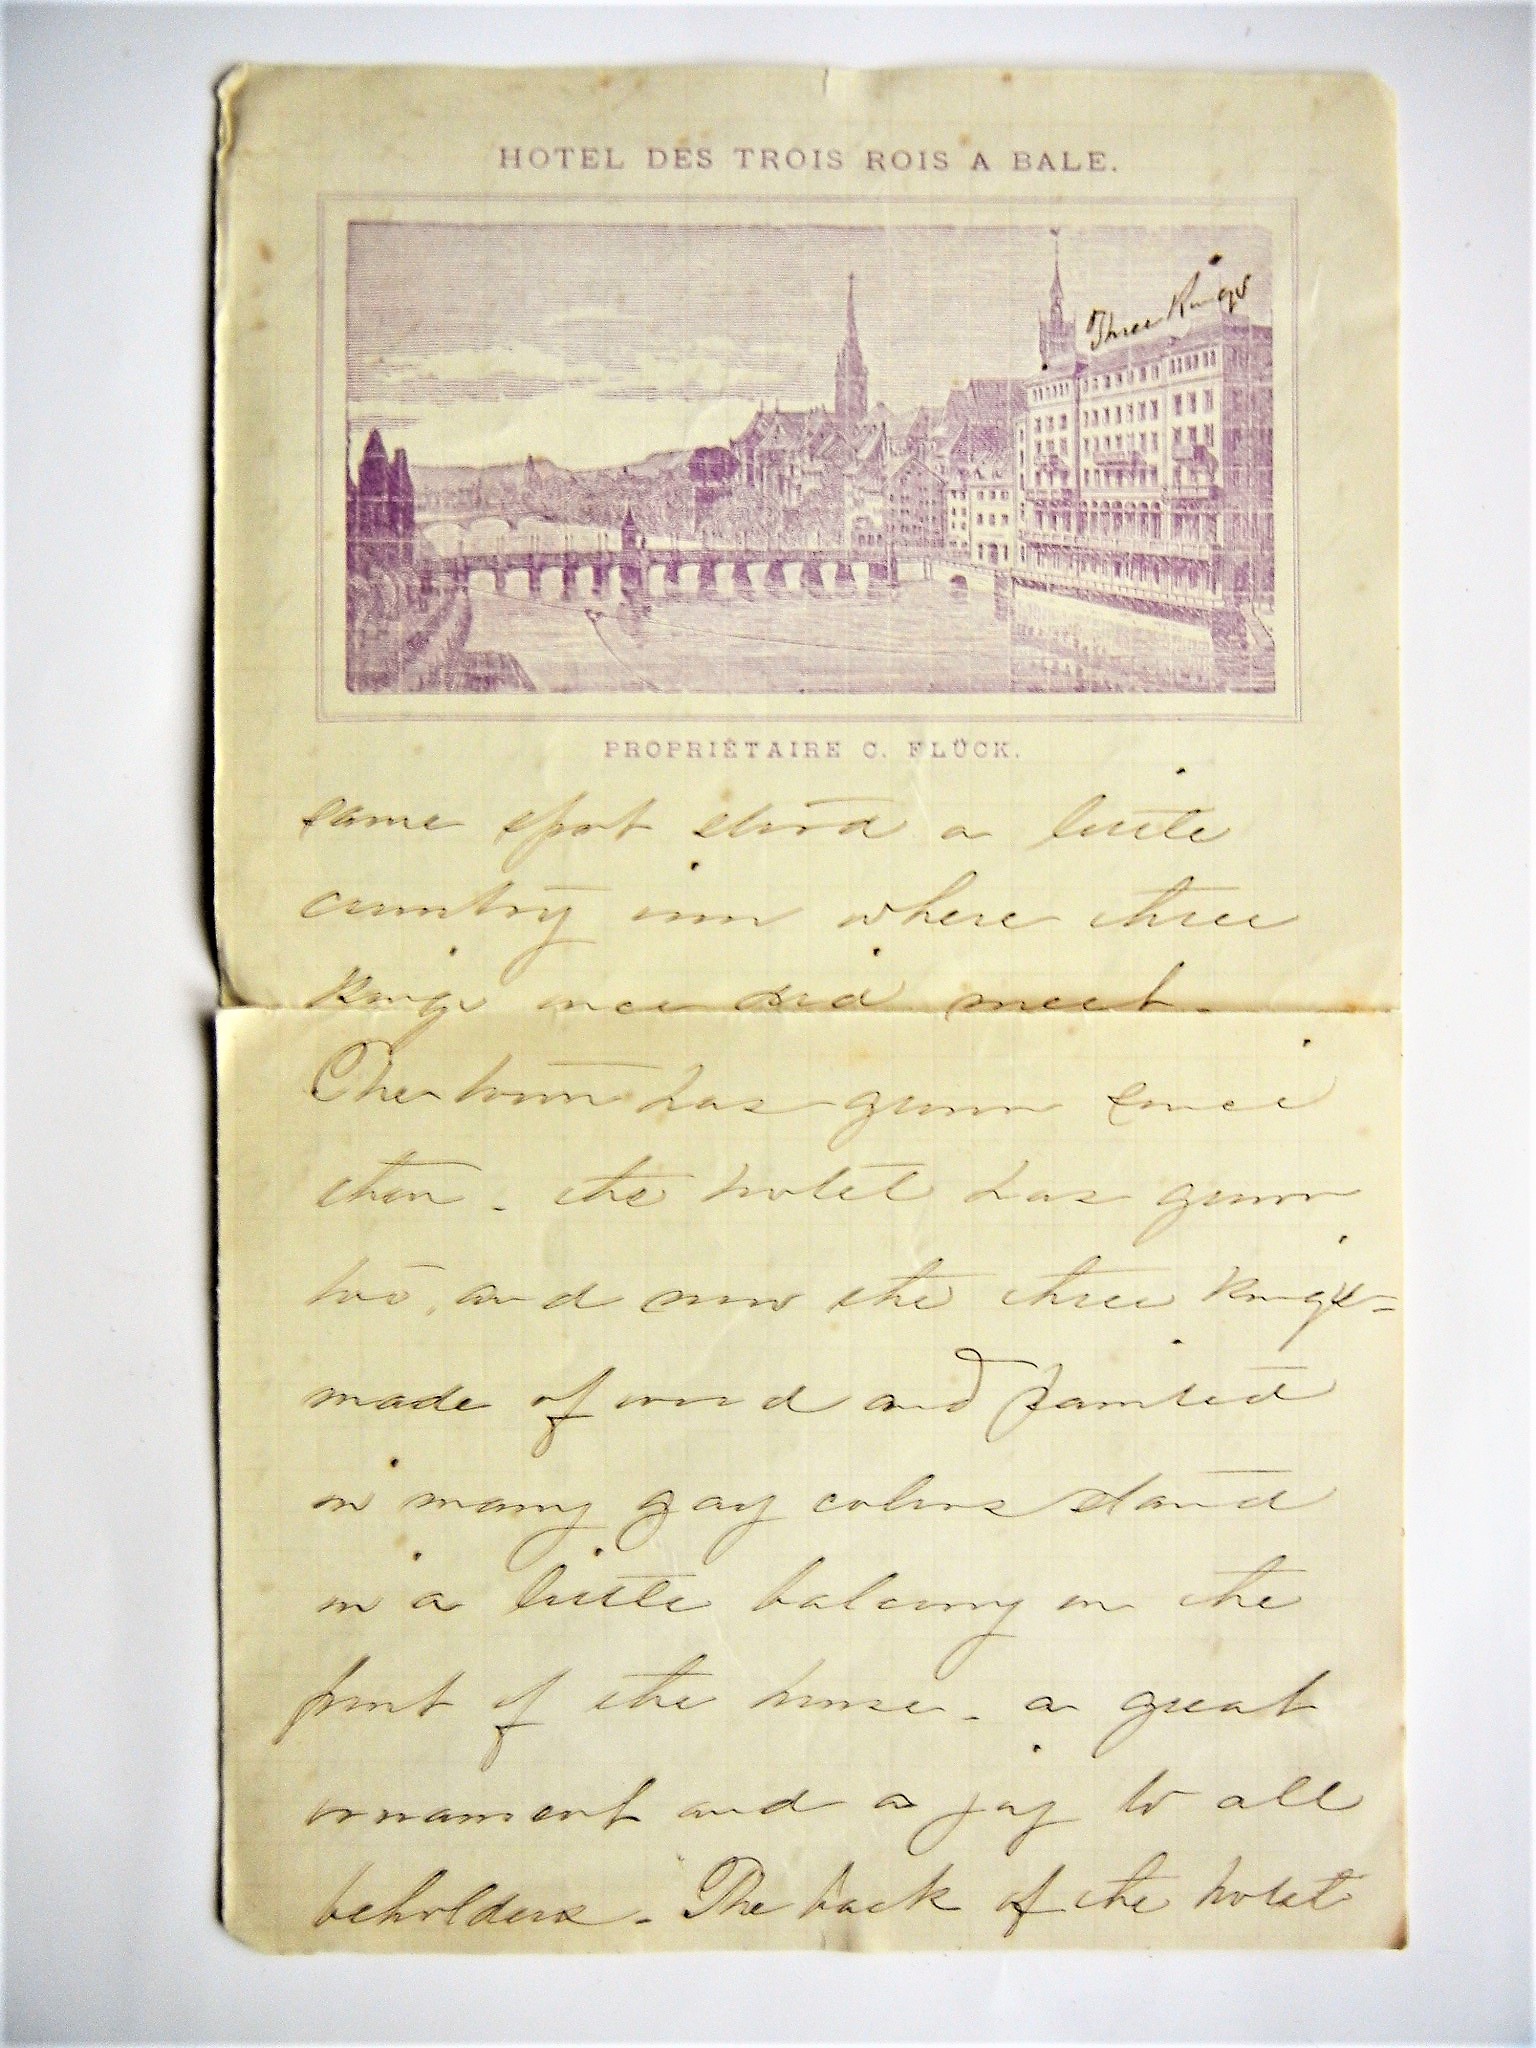 HOTEL DES TROIS ROIS A BALE.
Three Kings
PROPRIÉTAIRE C. FLÜCK.
same spot stood a little
country inn where three
Kings once did meet.
The town has grown since
then - the hotel has grown
too, and now the three Kings -
made of wood and painted
in many gay colors stand
in a little balcony on the
front of the house - a great
ornament and a joy to all
beholders - The back of the hotel